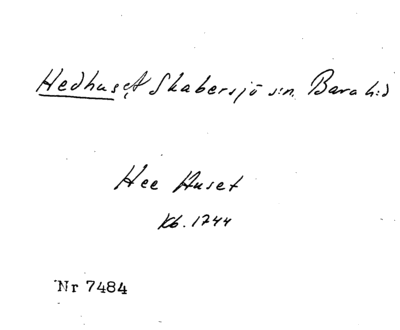 Hedhuset Skabersjö s:n. Bara h:d
Hee Huset
Kb. 1744
Nr 7484